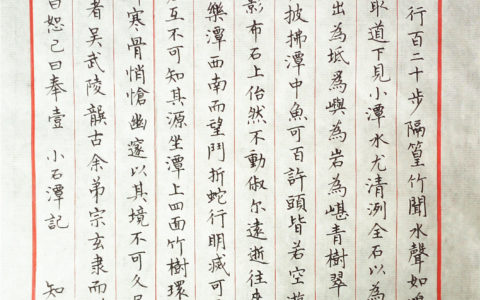 行百二十步隔篁竹聞水聲如鳴
取道下見小潭水尤清洌全石以為
出為坻為嶼為岩為嵁青樹翠
披拂潭中魚可百許頭皆若空遊
影布石上佁然不動俶尔遠逝往來
樂潭西南而望鬥折蛇行明滅可
互不可知其源坐潭上四面竹樹環
寒骨悄愴幽邃以其境不可久居
者吳武陵龔古余弟宗玄隸而
曰恕己曰奉壹 小石潭記 知